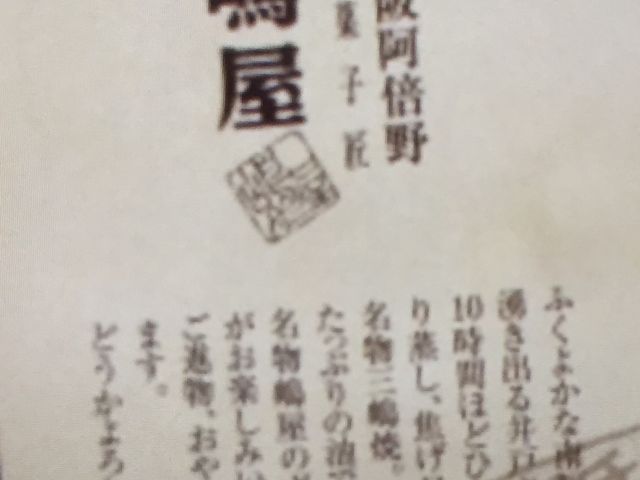 阪阿倍野
菓子匠
嶋屋
ふくよかな南
湧き出る井戸
10時間ほどひ
り蒸し、焦げ
名物三嶋焼。
たっぷりの油で
名物嶋屋の
がお楽しみい
ご進物、おや
ます。
どうかよろ